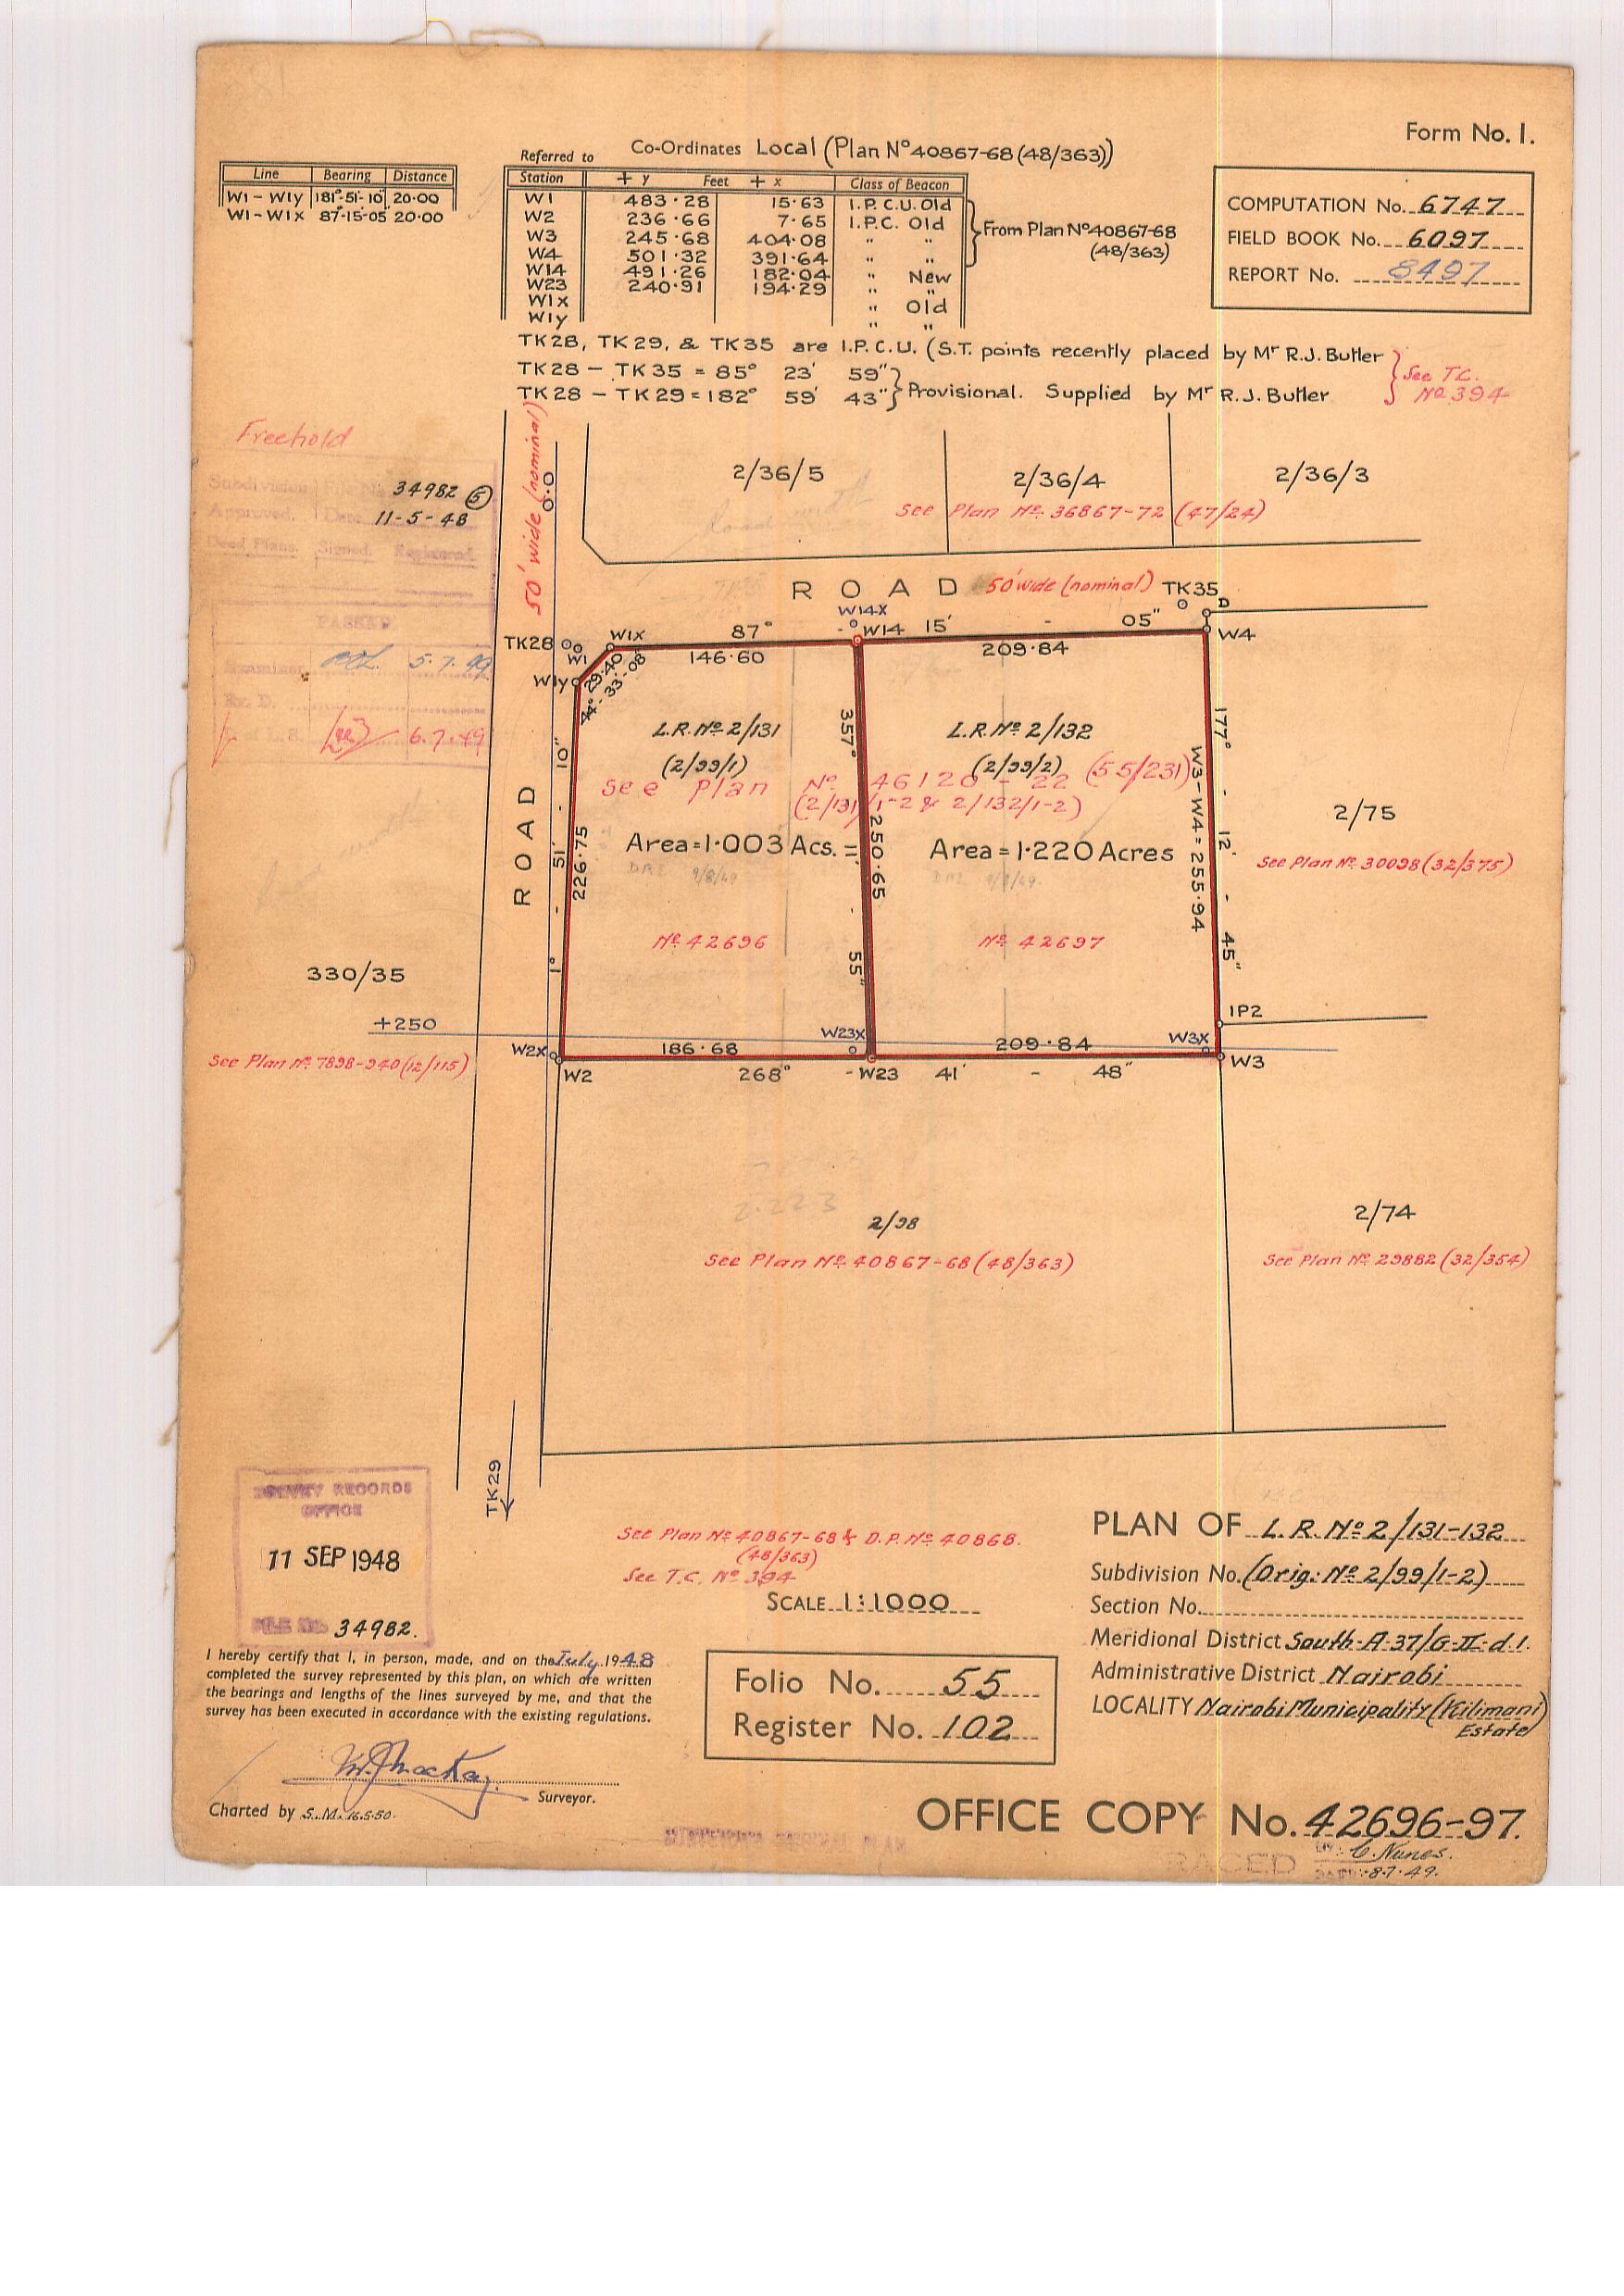 Form No. 1.
Referred to Co-Ordinates Local (Plan Nº 40867-68 (48/363))
Line Bearing Distance
W1-W1y 181°-51'-10" 20.00
W1-W1x 87-15-05 20.00
Station + y Feet + x Class of Beacon
W1 483.28 15.63 I.P.C.U. Old
W2 236.66 7.65 I.P.C. Old
W3 245.68 404.08 " "
W4 501.32 391.64 " "
W14 491.26 182.04 " New
W23 240.91 194.29 " "
W1x " Old
W1y " "
From Plan Nº 40867-68
(48/363)
COMPUTATION No. 6747
FIELD BOOK No. 6097
REPORT No. 8497
TK28, TK29, & TK35 are I.P.C.U. (S.T. points recently placed by Mr R.J. Butler
TK28 - TK35 = 85° 23' 59"
TK28 - TK29 = 182° 59' 43" } Provisional. Supplied by Mr R.J. Butler
See T.C.
Nº 394
Freehold
Subdivision File No. 34982 (5)
Approved. Date 11-5-48
Deed Plans. Signed. Registered.
PASSED
Examiner 5.7.49
6.7.49
50' wide (nominal)
0.0
2/36/5
2/36/4
2/36/3
See Plan Nº 36867-72 (47/24)
ROAD 50' wide (nominal) TK35
D
W14X
TK28 W1 W1X 87° W14 15' - 05" W4
146.60 209.84
W1y 29.40
44°-33'-08"
L.R. Nº 2/131
(2/99/1)
L.R. Nº 2/132
(2/99/2)
See Plan Nº 46120-22 (55/231)
(2/131/1-2 & 2/132/1-2)
Area = 1.003 Acs.
Area = 1.220 Acres
Nº 42696
Nº 42697
ROAD
1° - 51' - 10"
226.75
357° - 11' - 55"
250.65
177° - 12' - 45"
W3-W4 = 255.94
2/75
See Plan Nº 30098 (32/375)
330/35
+250
See Plan Nº 7898-940 (12/115)
W2X W23X W3X 1P2
186.68 209.84
W2 268° - W23 41' - 48" W3
2.223
2/98
See Plan Nº 40867-68 (48/363)
2/74
See Plan Nº 29882 (32/354)
TK29
SURVEY RECORDS
OFFICE
11 SEP 1948
FILE No. 34982.
See Plan Nº 40867-68 & D.P. Nº 40868.
(48/363)
See T.C. Nº 394
SCALE 1:1000
PLAN OF L.R. Nº 2/131-132
Subdivision No. (Orig: Nº 2/99/1-2)
Section No.
Meridional District South-A-37/G-II-d.1.
Administrative District Nairobi
LOCALITY Nairobi Municipality (Kilimani
Estate)
I hereby certify that I, in person, made, and on the July 1948
completed the survey represented by this plan, on which are written
the bearings and lengths of the lines surveyed by me, and that the
survey has been executed in accordance with the existing regulations.
Surveyor.
Charted by S.M. 16.5.50.
Folio No. 55
Register No. 102
OFFICE COPY No. 42696-97.
C. Nunes.
8.7.49.